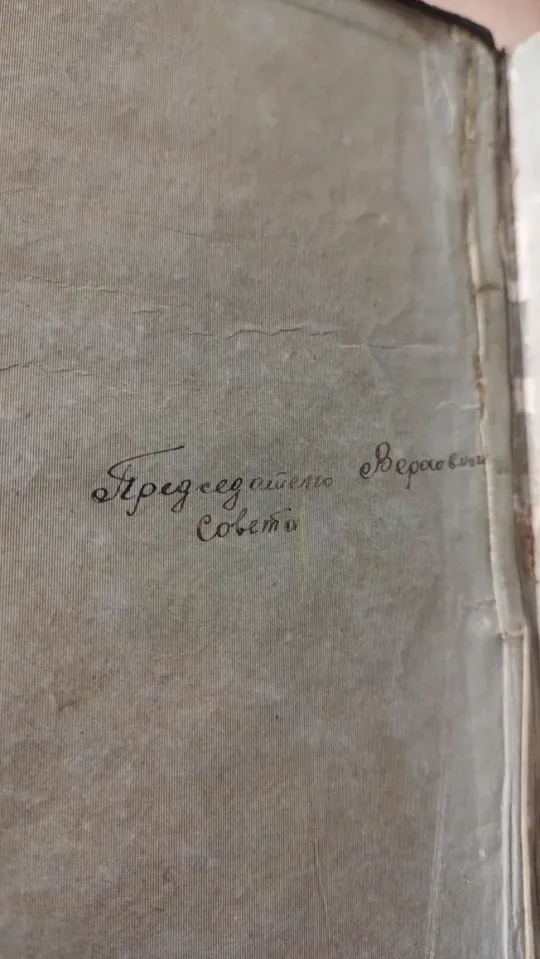 Председателю Верховный
Совета